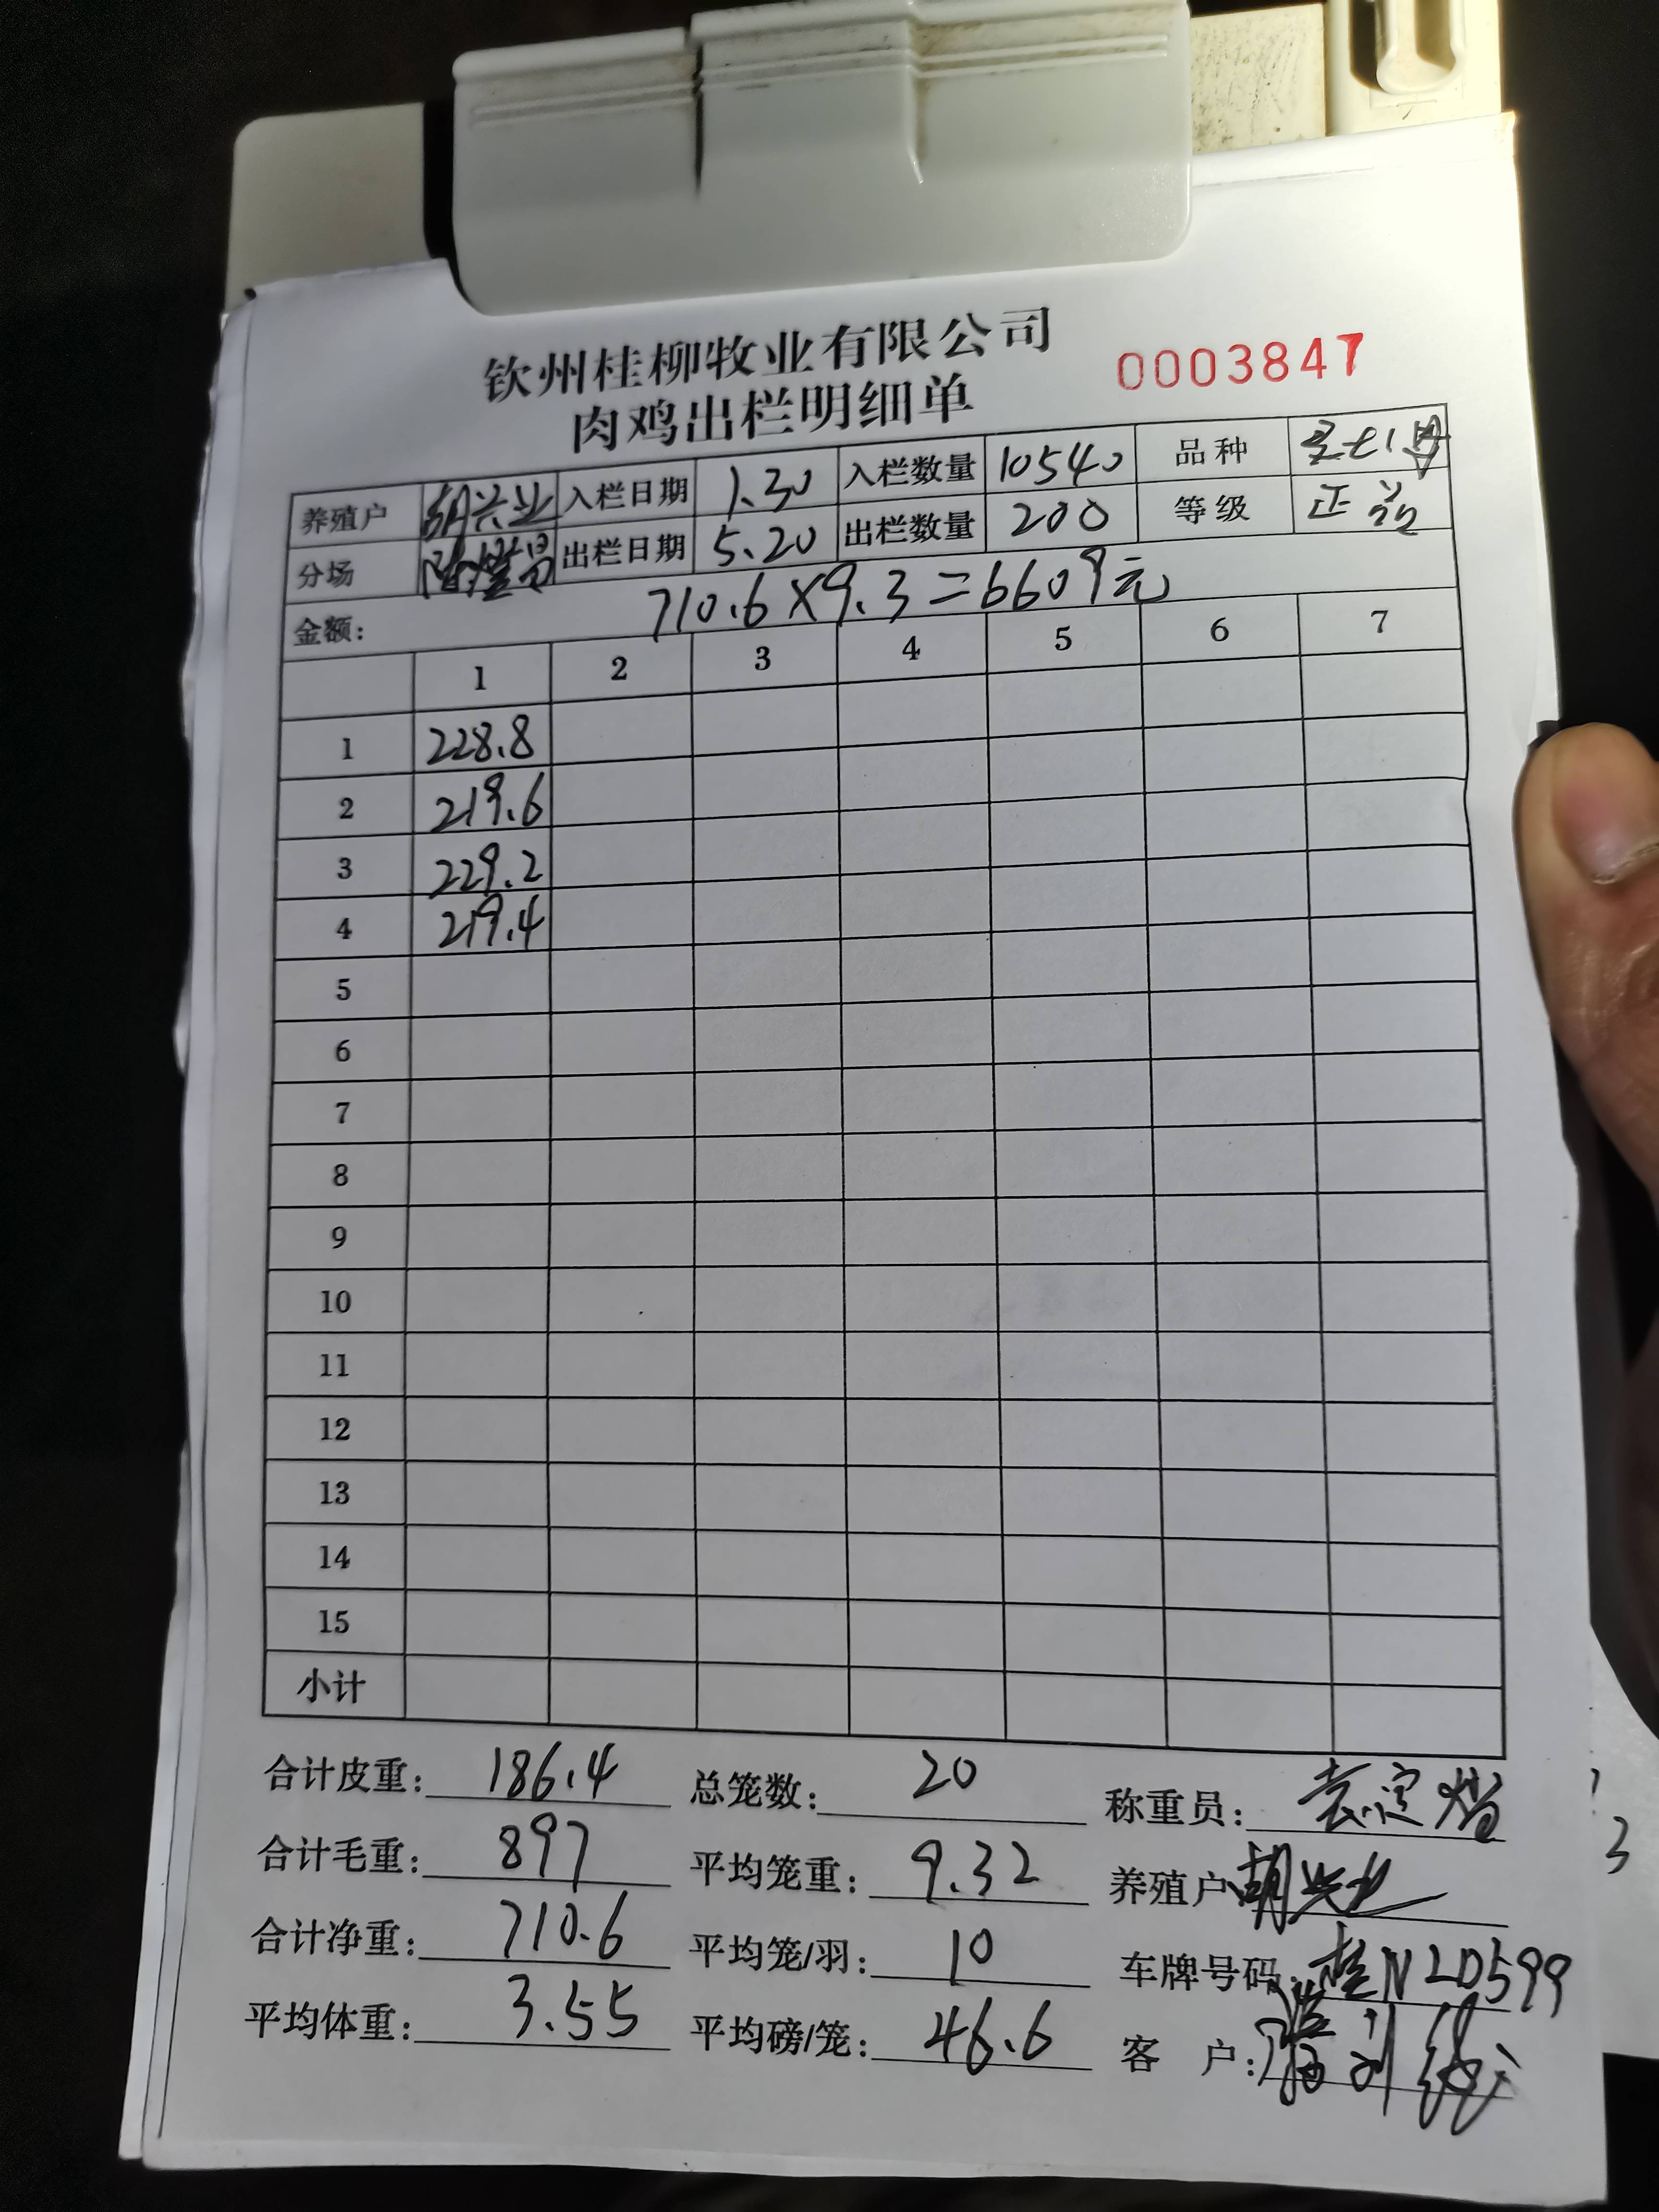 钦州桂柳牧业有限公司
肉鸡出栏明细单 0003847
养殖户 胡兴业 入栏日期 1.30 入栏数量 10540 品种
分场 出栏日期 5.20 出栏数量 200 等级 正品
金额: 710.6×9.3=6609元
1 2 3 4 5 6 7
1 228.8
2 219.6
3 229.2
4 219.4
5
6
7
8
9
10
11
12
13
14
15
小计
合计皮重: 186.4 总笼数: 20 称重员:
合计毛重: 897 平均笼重: 9.32 养殖户 胡兴业
合计净重: 710.6 平均笼/羽: 10 车牌号码: 桂NLD599
平均体重: 3.55 平均磅/笼: 46.6 客 户:
3